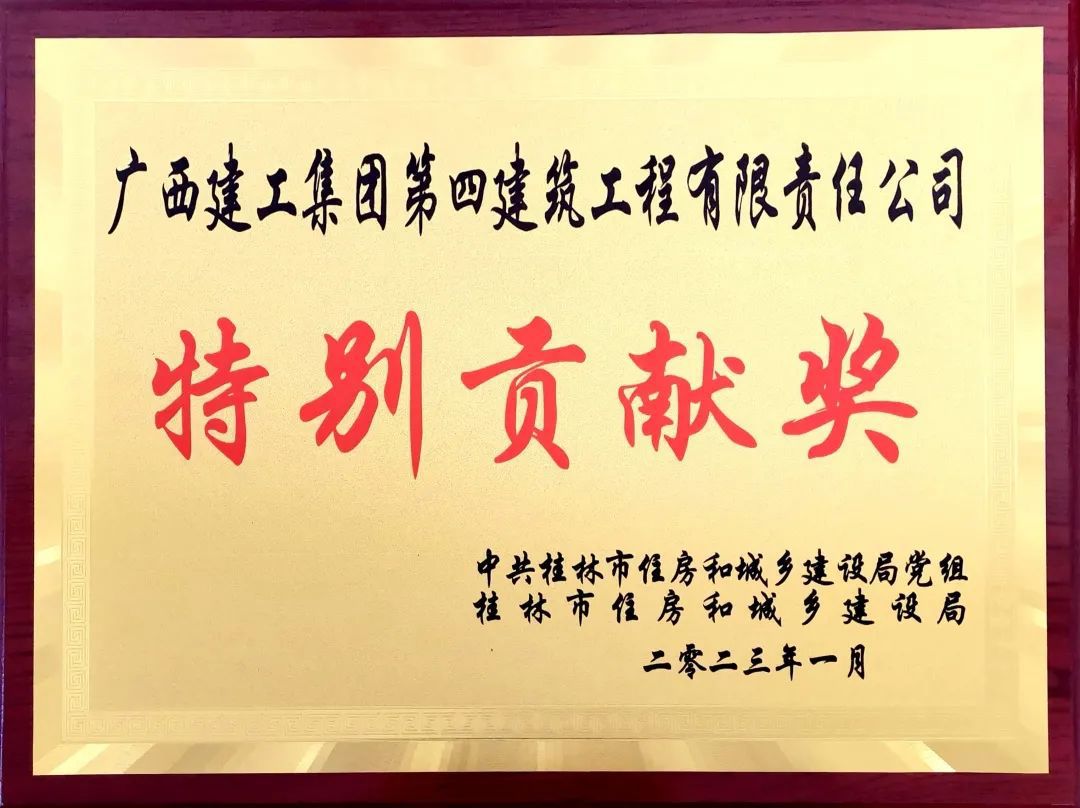 广西建工集团第四建筑工程有限责任公司
特别贡献奖
中共桂林市住房和城乡建设局党组
桂林市住房和城乡建设局
二零二三年一月